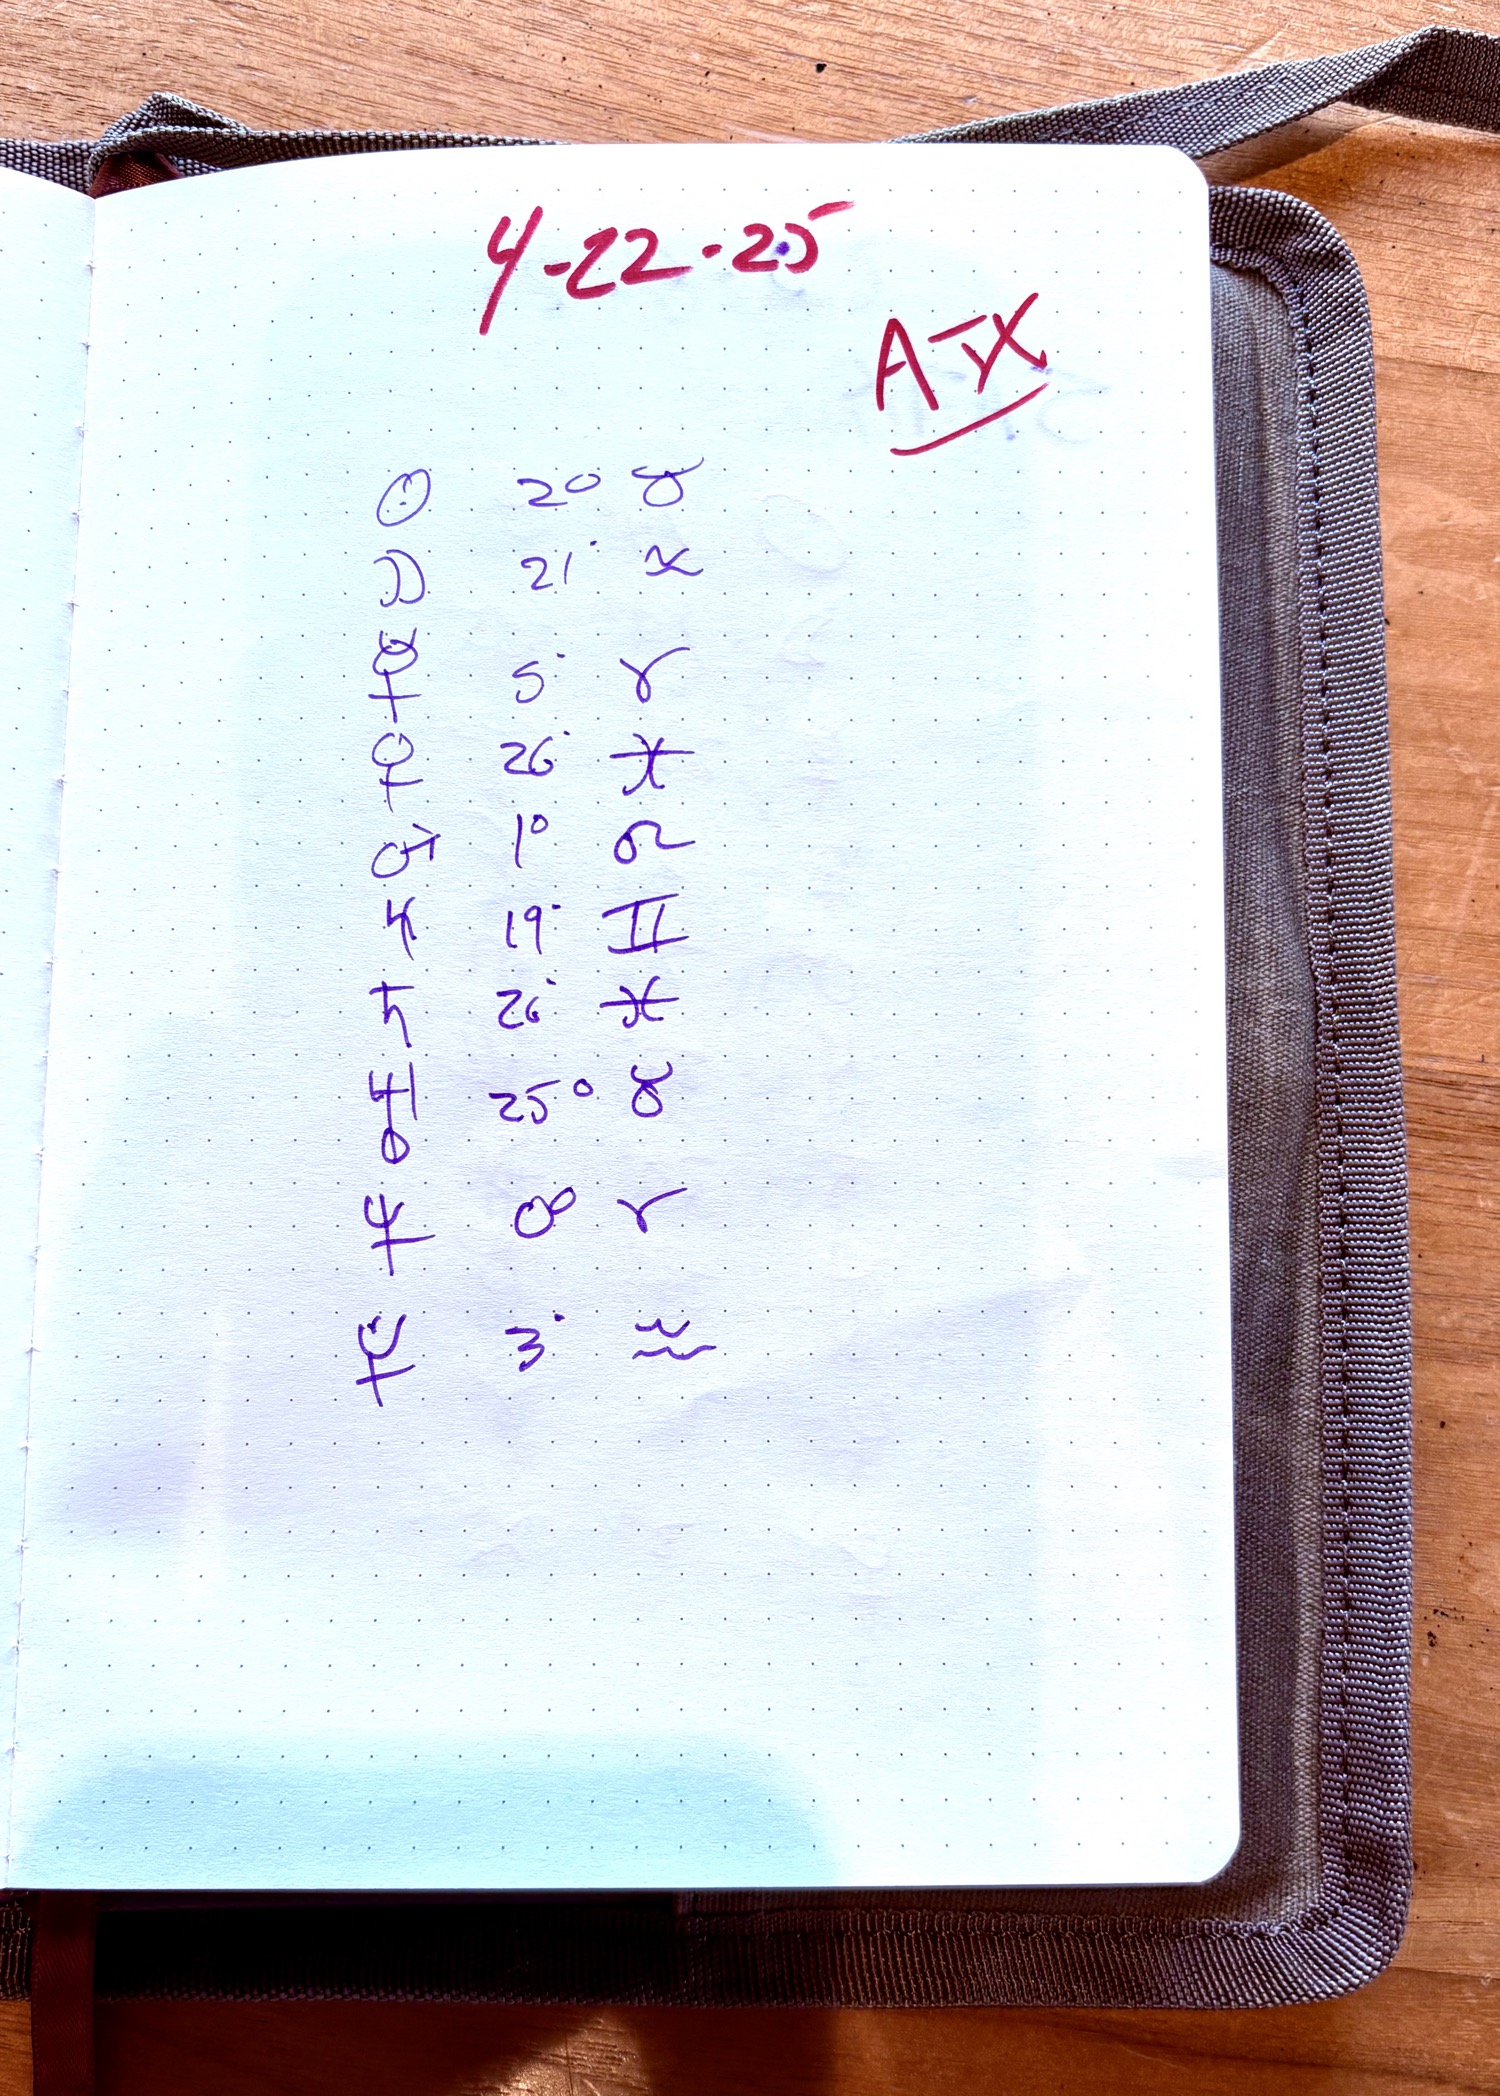 4-22-25
ATX
☉ 2° ♉
☽ 21° ♒
☿ 5° ♈
♀ 26° ♓
♂ 1° ♌
♃ 19° ♊
♄ 26° ♓
♅ 25° ♉
♆ 0° ♈
⯓ 3° ♒